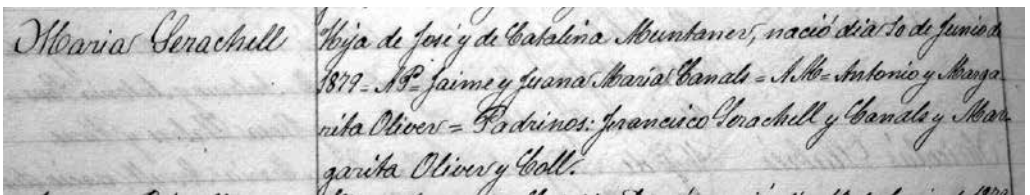 Maria Serachell
Hija de José y de Catalina Muntaner, nació dia 10 de Junio de
1879 = AP = Jaime y Juana Maria Canals = AM = Antonio y Marga
rita Oliver = Padrinos: Francisco Serachell y Canals y Mar-
garita Oliver y Coll.